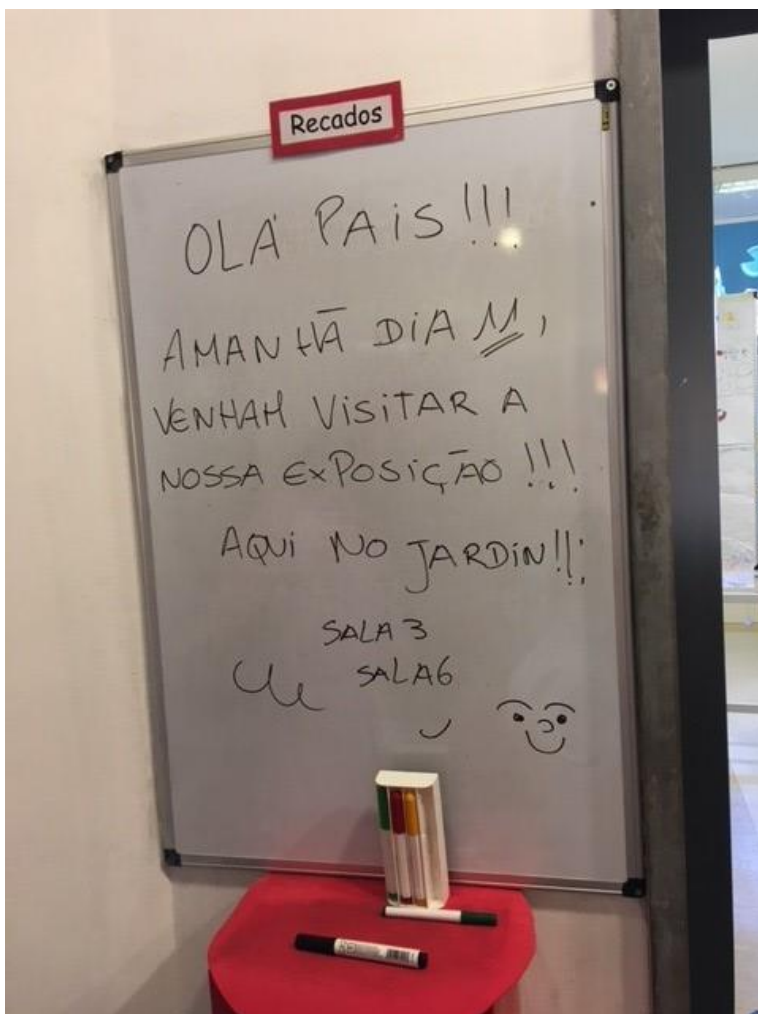 Recados
OLÁ PAIS!!!
AMANHÃ DIA 11,
VENHAM VISITAR A
NOSSA EXPOSIÇÃO!!!
AQUI NO JARDIN!!!
SALA 3
SALA 6